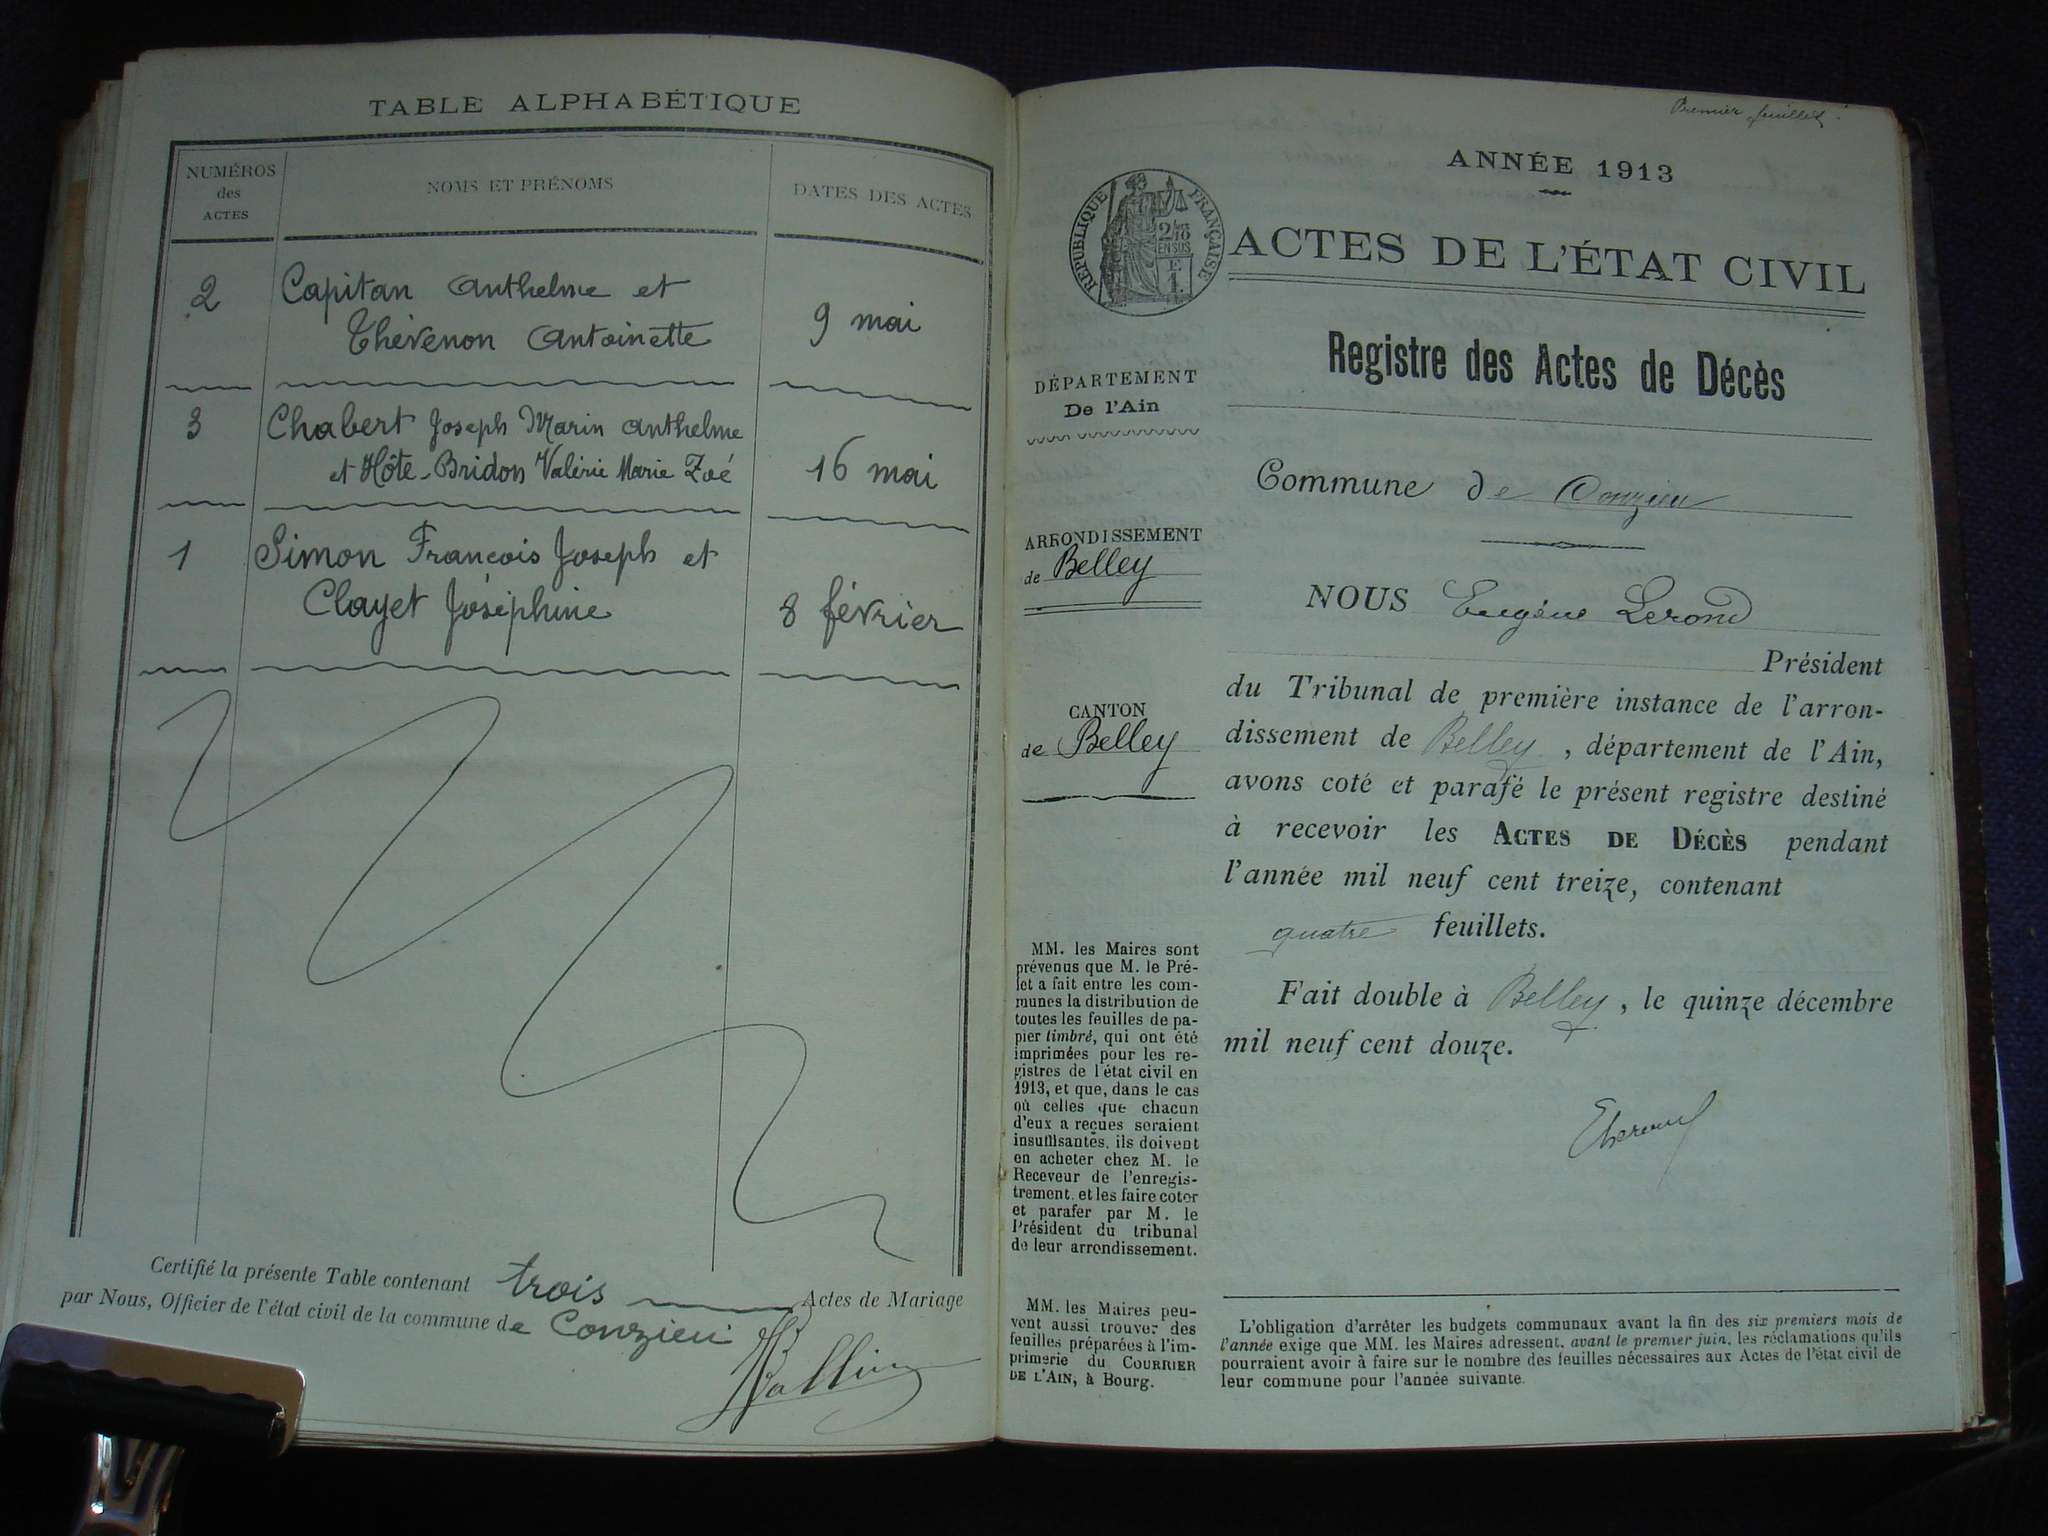 TABLE ALPHABÉTIQUE
NUMÉROS
des
ACTES
NOMS ET PRÉNOMS
DATES DES ACTES
2
Capitan Anthelme et
Thévenon Antoinette
9 mai
3
Chabert Joseph Marin Anthelme
et Hôte-Bridon Valérie Marie Zoé
16 mai
1
Simon François Joseph et
Clayet Joséphine
8 février
Certifié la présente Table contenant trois Actes de Mariage
par Nous, Officier de l'état civil de la commune de Conzieu
Premier feuillet.
ANNÉE 1913
RÉPUBLIQUE FRANÇAISE
2/10
EN SUS
ACTES DE L'ÉTAT CIVIL
Registre des Actes de Décès
DÉPARTEMENT
De l'Ain
Commune de Conzieu
ARRONDISSEMENT
de Belley
NOUS Eugène Lerond
Président
du Tribunal de première instance de l'arron-
dissement de Belley, département de l'Ain,
avons coté et parafé le présent registre destiné
à recevoir les ACTES DE DÉCÈS pendant
l'année mil neuf cent treize, contenant
quatre feuillets.
Fait double à Belley, le quinze décembre
mil neuf cent douze.
CANTON
de Belley
MM. les Maires sont
prévenus que M. le Pré-
fet a fait entre les com-
munes la distribution de
toutes les feuilles de pa-
pier timbré, qui ont été
imprimées pour les re-
gistres de l'état civil en
1913, et que, dans le cas
où celles que chacun
d'eux a reçues seraient
insuffisantes, ils doivent
en acheter chez M. le
Receveur de l'enregis-
trement, et les faire coter
et parafer par M. le
Président du tribunal
de leur arrondissement.
MM. les Maires peu-
vent aussi trouver des
feuilles préparées à l'im-
primerie du COURRIER
DE L'AIN, à Bourg.
L'obligation d'arrêter les budgets communaux avant la fin des six premiers mois de
l'année exige que MM. les Maires adressent, avant le premier juin, les réclamations qu'ils
pourraient avoir à faire sur le nombre des feuilles nécessaires aux Actes de l'état civil de
leur commune pour l'année suivante.